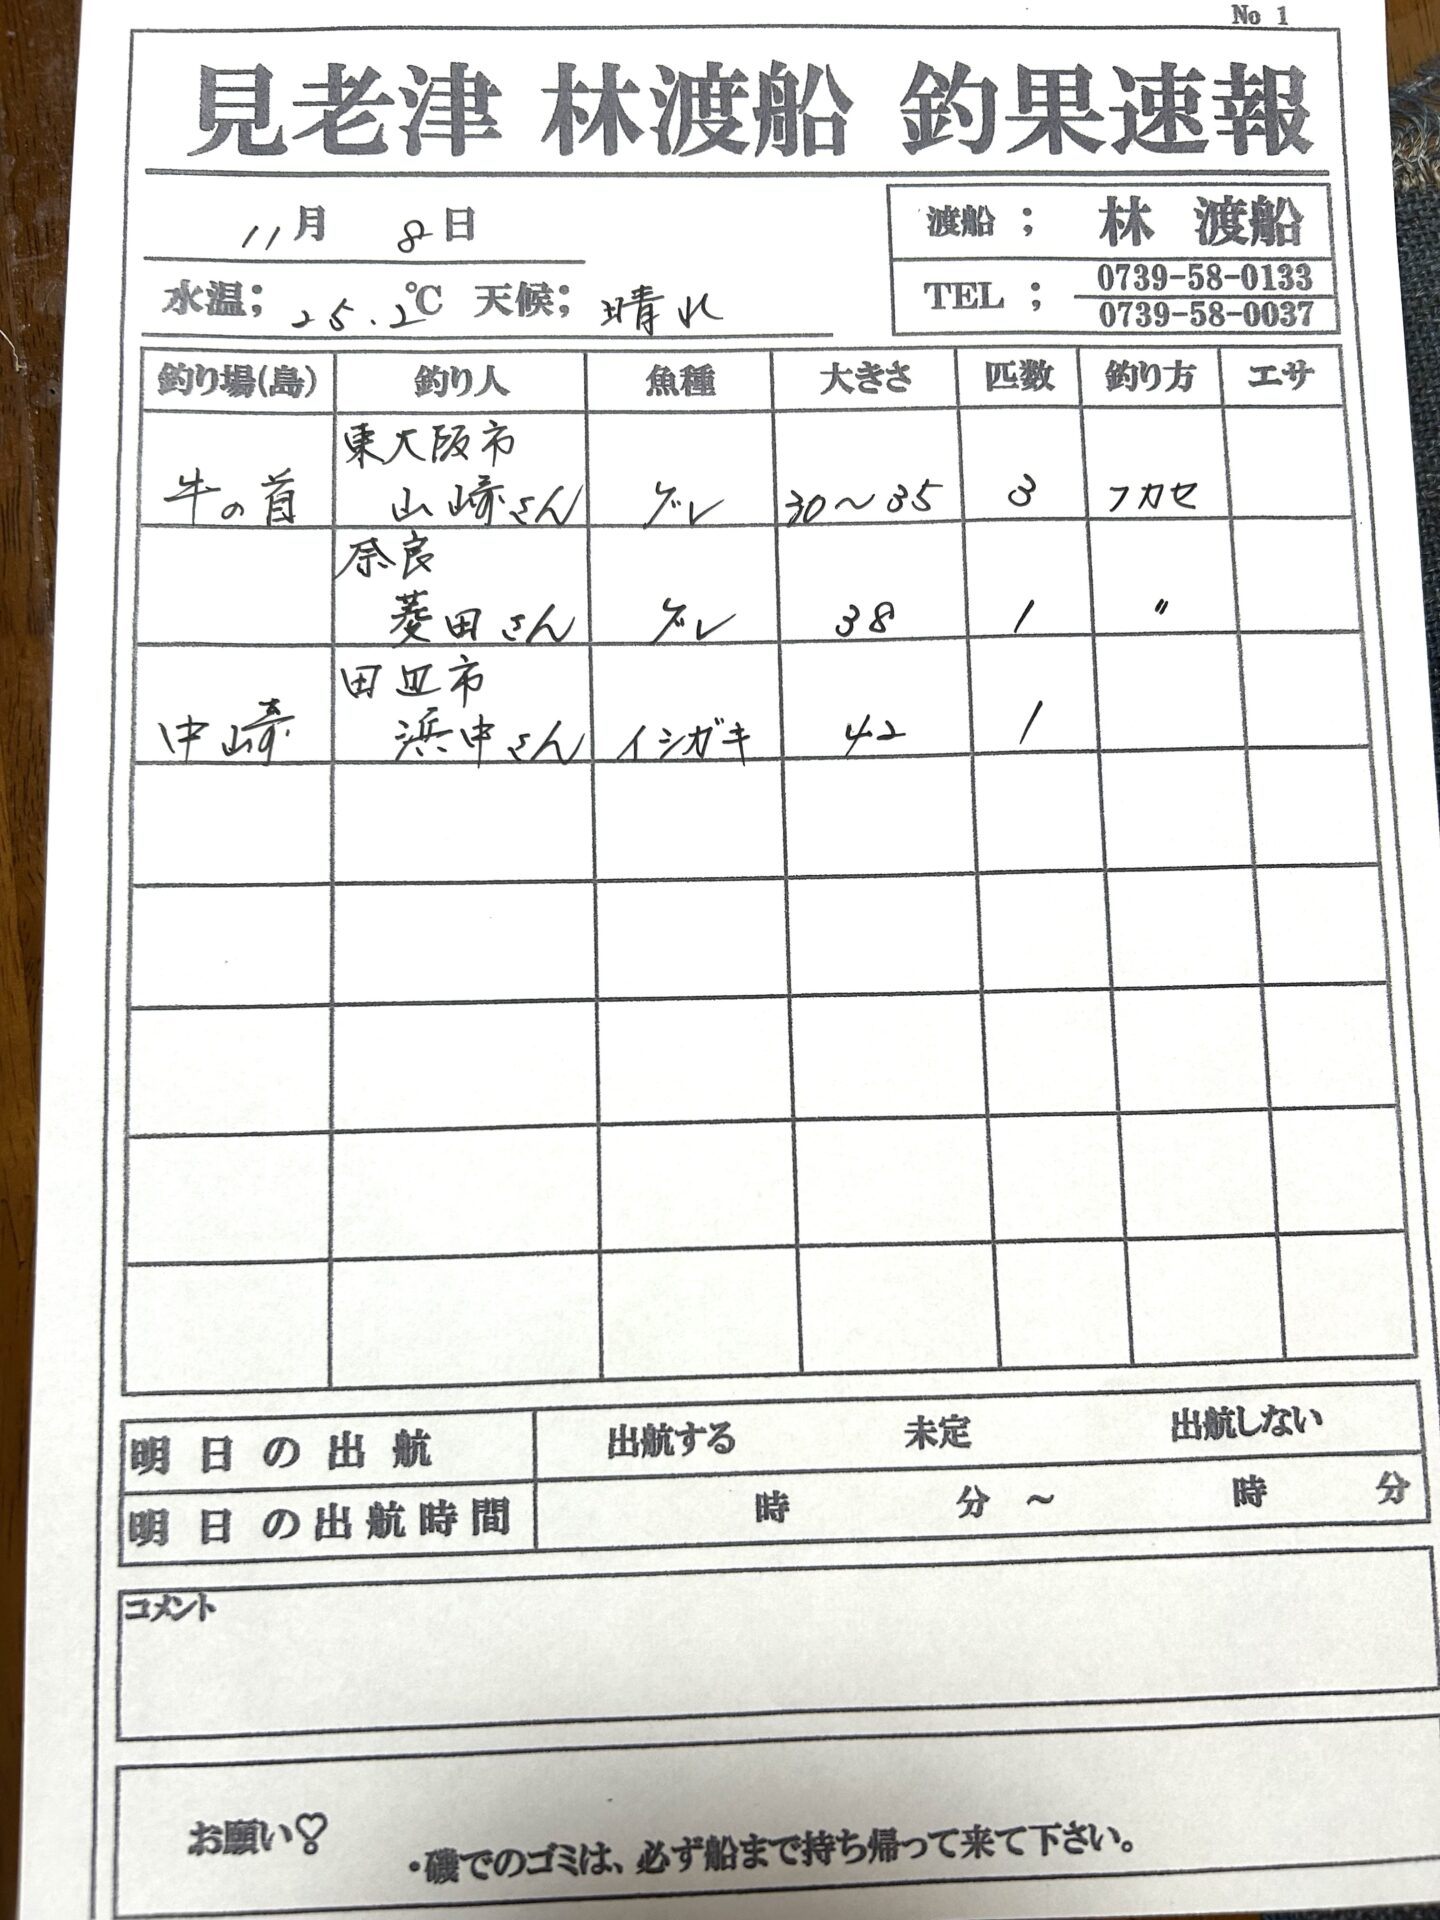 No 1
見老津 林渡船 釣果速報
11月 8日
渡船 ; 林 渡船
水温; 25.2℃ 天候; 晴れ
TEL ; 0739-58-0133
0739-58-0037
釣り場(島) 釣り人 魚種 大きさ 匹数 釣り方 エサ
東大阪市
牛の首 山崎さん グレ 30〜35 3 フカセ
奈良
菱田さん グレ 38 1 〃
田辺市
中崎 浜中さん イシガキ 42 1
明日の出航 出航する 未定 出航しない
明日の出航時間 時 分 〜 時 分
コメント
お願い♡
・磯でのゴミは、必ず船まで持ち帰って来て下さい。